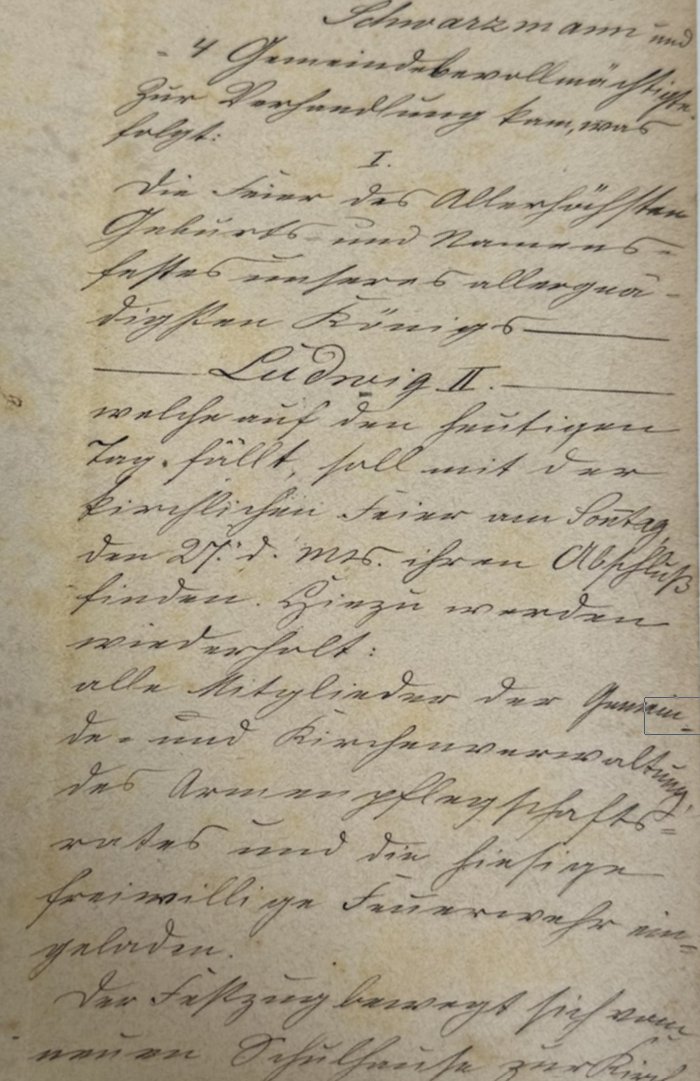 Schwarzmann und
- 4 Gemeindebevollmächtigte.
Zur Verhandlung kam, was
folgt:
I.
Die Feier des Allerhöchsten
Geburts- und Namens-
festes unseres allergnä-
digsten Königs
Ludwig II.
welche auf den heutigen
Tag fällt, soll mit der
kirchlichen Feier am Sontag,
den 27. d. Mts. ihren Abschluß
finden. Hiezu werden
wiederholt:
alle Mitglieder der Gemein-
de- und Kirchenverwaltung,
des Armenpflegschafts-
rates und die hiesige
freiwillige Feuerwehr ein-
geladen.
Der Festzug bewegt sich vom
neuen Schulhause zur Kirch